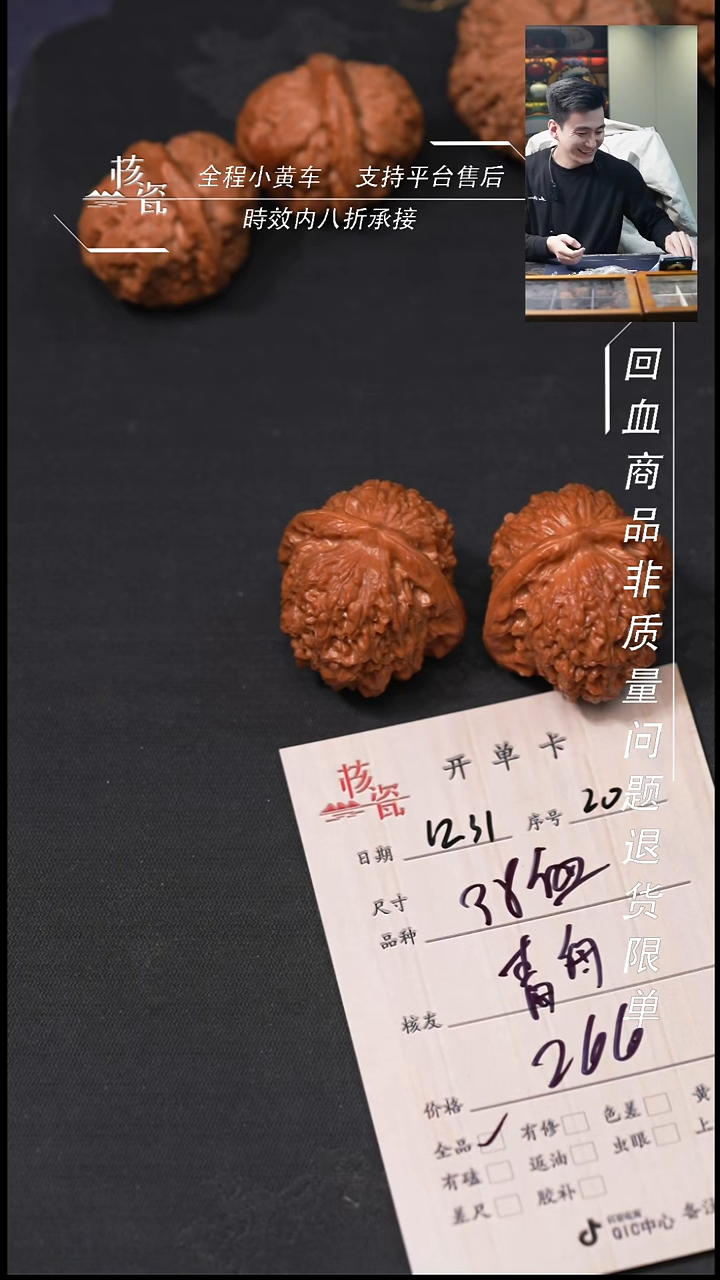 核瓷
全程小黄车 支持平台售后
時效内八折承接
回血商品非质量问题退货限单
核瓷
开单卡
日期 1231 序号 20
尺寸
品种
核友
266
价格
全品 ✓ 有修 色差 黄
有磕 返油 虫眼 上
差尺 胶补
QIC中心 备注